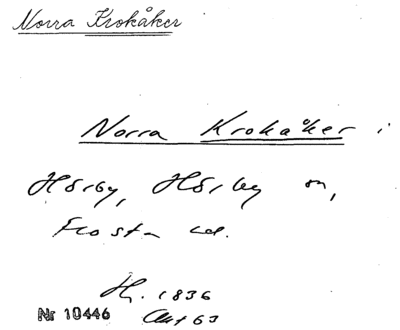 Norra Krokåker
Norra Krokåker i
Hörby, Hörby sn,
Frosta hd.
H. 1836
Nr 10446 Akt 63